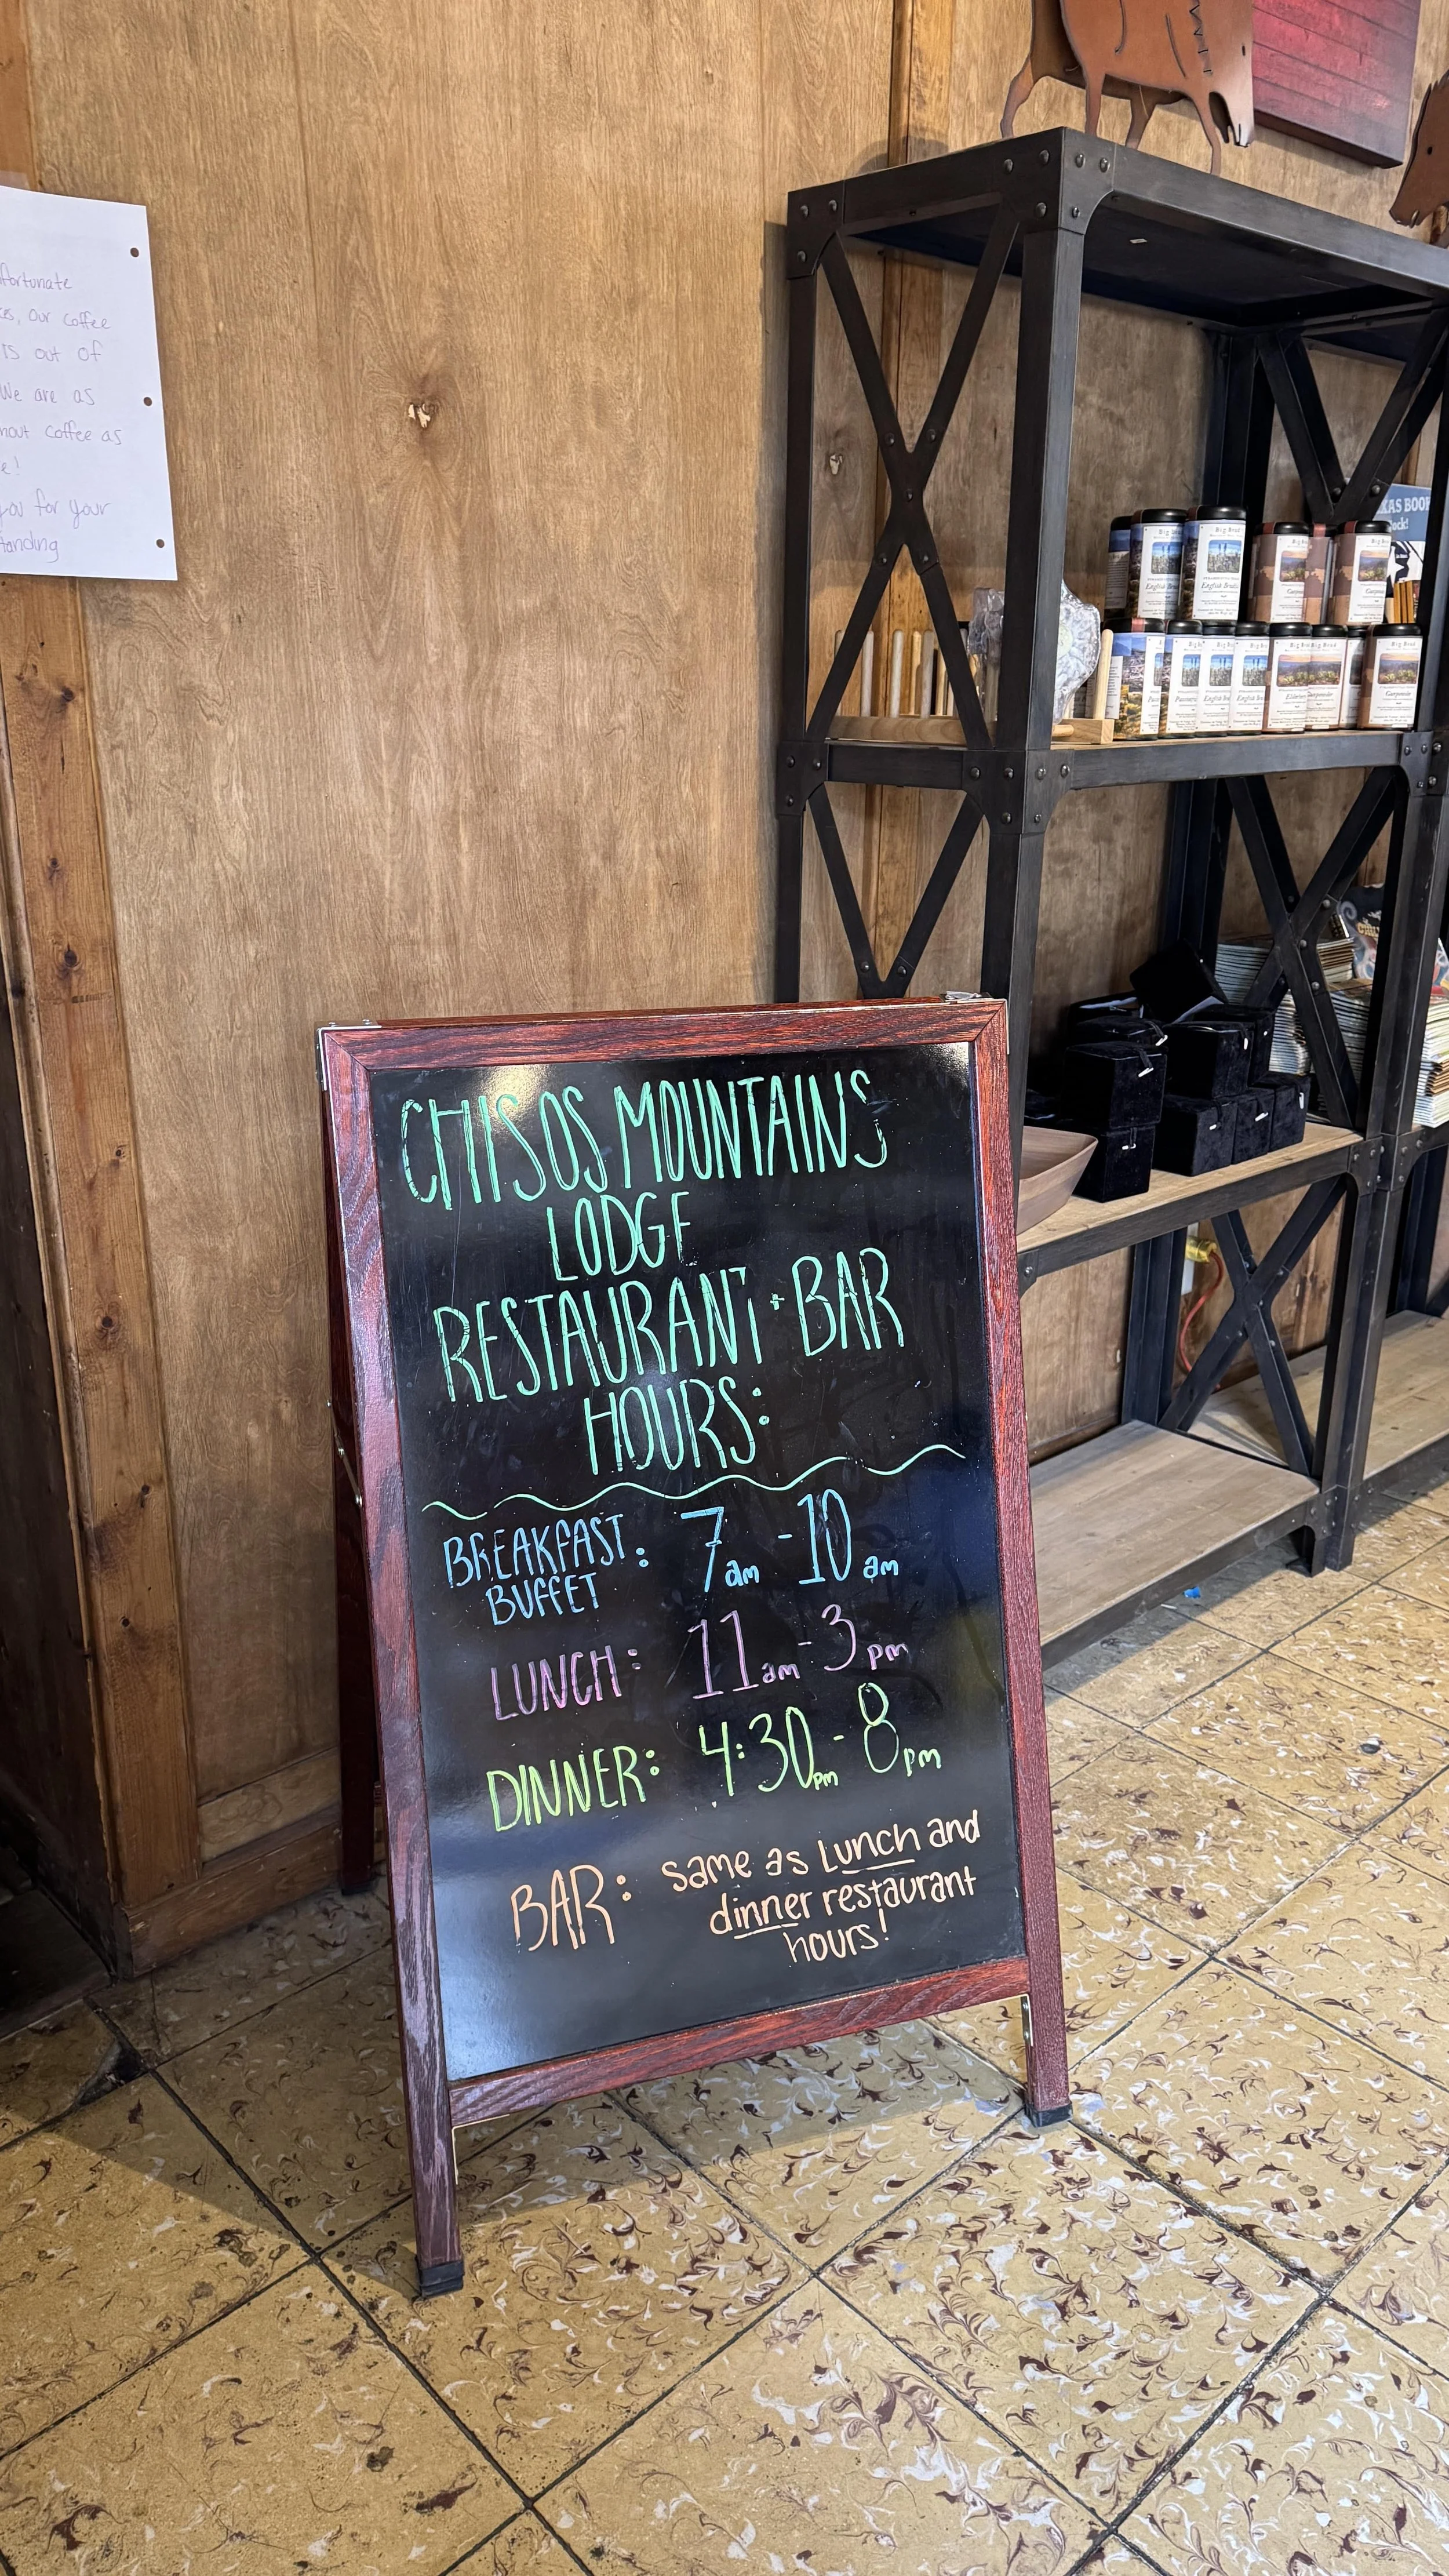 fortunate
our coffee
is out of
We are as
coffee as
e!
you for your
tanding
CHISOS MOUNTAINS
LODGE
RESTAURANT + BAR
HOURS:
BREAKFAST
BUFFET : 7am - 10am
LUNCH: 11am - 3pm
DINNER: 4:30pm - 8pm
BAR: same as Lunch and
dinner restaurant
hours!
Big Bend
English
Big Bend
English